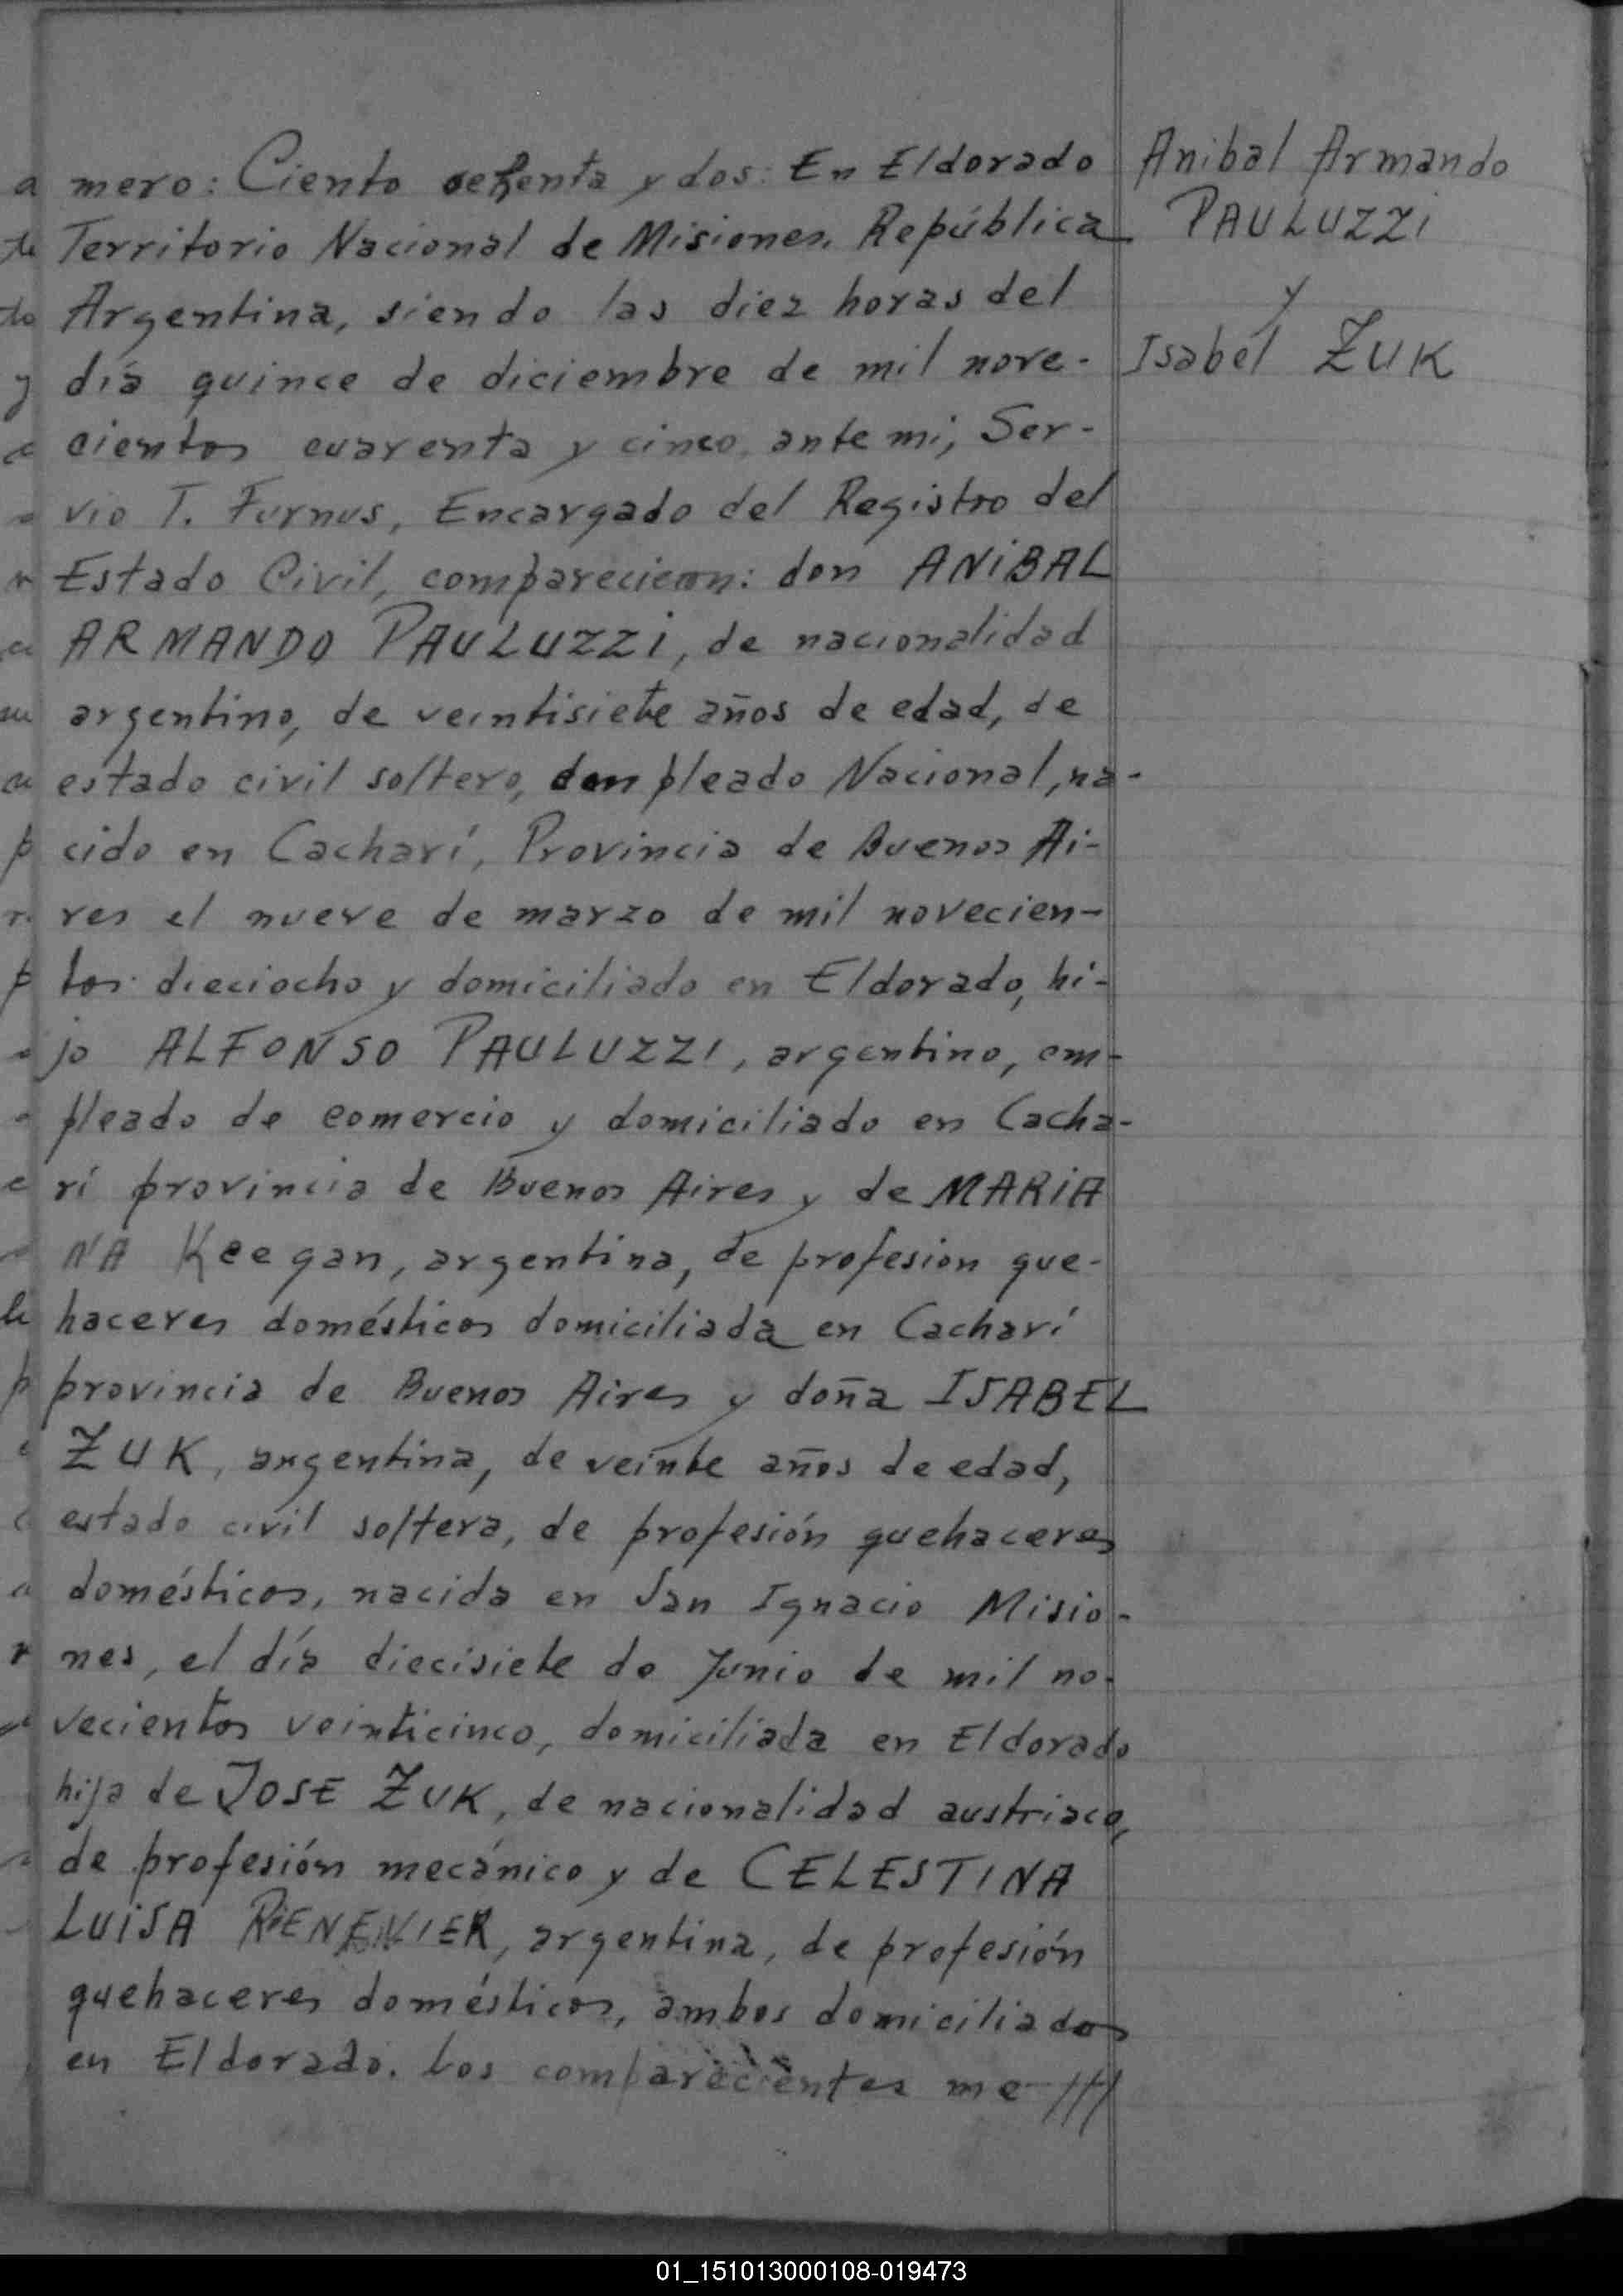 mero: Ciento ochenta y dos: En Eldorado
Territorio Nacional de Misiones, República
Argentina, siendo las diez horas del
día quince de diciembre de mil nove-
cientos cuarenta y cinco, ante mi, Ser-
vio T. Furnus, Encargado del Registro del
Estado Civil, comparecieron: don ANiBAL
ARMANDO PAULUZZi, de nacionalidad
argentino, de veintisiete años de edad, de
estado civil soltero, pleado Nacional, na-
cido en Cacharí, Provincia de Buenos Ai-
res el nueve de marzo de mil novecien-
tos dieciocho y domiciliado en Eldorado, hi-
jo ALFONSO PAULUZZI, argentino, em-
pleado de comercio y domiciliado en Cacha-
rí provincia de Buenos Aires y de MARiA
NA Keegan, argentina, de profesion que-
haceres domésticos domiciliada en Cacharí
provincia de Buenos Aires y doña ISABEL
ZUK, argentina, de veinte años de edad,
estado civil soltera, de profesión quehaceres
domésticos, nacida en San Ignacio Misio-
nes, el día diecisiete de Junio de mil no-
vecientos veinticinco, domiciliada en Eldorado
hija de JOSE ZUK, de nacionalidad austriaco,
de profesión mecánico y de CELESTINA
LUiSA, argentina, de profesión
quehaceres domésticos, ambos domiciliados
en Eldorado. Los comparecientes me ///
Anibal Armando
PAULUZZi
y
Isabel ZUK
01_151013000108-019473